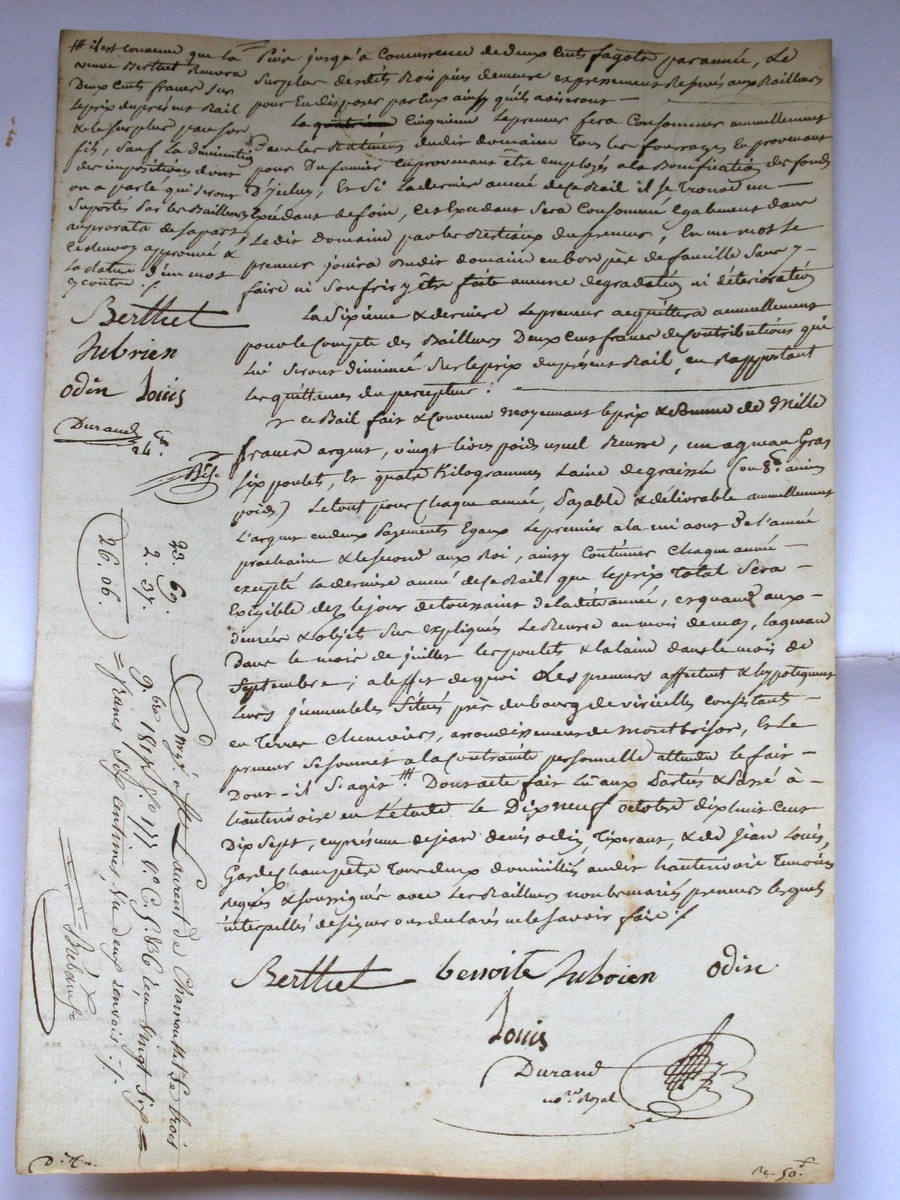 /// il est convenu que la
veuve Berthet Recevra
Deux cents francs sur
le prix du présent Bail
& le surplus par son
fils, Sauf la diminution
des impositions dont
on a parlé qui seront
Suportés par les Bailleurs
au prorata de sa part,
ce Renvoy approuvé &
la Rature d'un mot
cy contre ./.
Berthet
Jubrien
odin Louis
Durand
jusqu'à Concurrence de deux cents fagots par année, Le
Surplus desdits Bois pins demeure expressément Réservé aux Bailleurs
pour En disposer par Eux ainsy qu'ils aviseront —
La Cinquieme Le preneur fera Consommer annuellement
par les Bestiaux dudit domaine Tous les fourrages En provenant
pour Du fumier En provenant être employés a la Bonification des fonds
D'yceluy, Et Si La derniere année de Ce Bail il Se Trouvait un —
Excédant de foin, cet Excédant Sera Consommé Egalement dans
Le dit Domaine par les Bestiaux du preneur, En un mot Le
preneur jouira Dudit domaine en bon père de famille Sans y —
faire ni Souffrir y être faite aucune dégradation ni détérioration
La Sixieme & derniere Le preneur acquittera annuellement
pour le Compte des Bailleurs Deux Cent francs de Contributions qui
Lui Seront diminués Sur le prix du présent Bail, en Rapportant
Les quittances du percepteur . —
Ce Bail fait & Convenu moyennant le prix & Somme de Mille
francs argent, vingt livres poids usuel Beurre, un agneau Gras
Six poulets, Et quatre Kilogrammes Laine dégraissée (ou 8# ancien
poids) Le tout pour Chaque année, Payable & délivrable annuellement
L'argent en deux Payements Egaux Le premier a la mi aout de l'année
prochaine & le Second aux Roi, ainsy Continuer Chaque année —
excepté la derniere année de Ce Bail que le prix Total Sera —
Exigible dez le jour de toussaint de ladite année, et quand aux —
denrées & objets Sus expliqués Le Beurre au mois de may, Lagneau
Dans le mois de juillet Les poulets & la laine dans le mois de
Septembre ; a l'effet de quoi Les preneurs affectent & hypotequent
Leurs jmmeubles Situés près du bourg de viricelle consistants —
en Terres Chenevieres, arrondissement de Montbrison, Et Le
preneur Se Soumet a la Contrainte personnelle attendu le fait —
Dont il S'agit /// Dont acte fait Lu aux Parties & Passé à —
hauterivoire en L'étude Le Dix neuf octobre dix huit cent
Dix Sept, en présence de jean denis odin, Tisserant, & de Jean Louis,
Garde Champetre Tous deux domiciliés audit hauterivoire Temoins
Requis & Soussignés avec Les Bailleurs non les mariés preneurs lesquels
interpellés de signer ont déclaré ne le Savoir faire ./.
Berthet benoite Jubrien odin
Louis
Durand
no.re Royal
23. 69.
2. 37.
26. 06.
Enrg.é à St Laurent de Chamousset Le trois
9bre 1817 f.o 177 v.o C. Reçu vingt six =
= francs six centimes, Vu deux renvois ./.